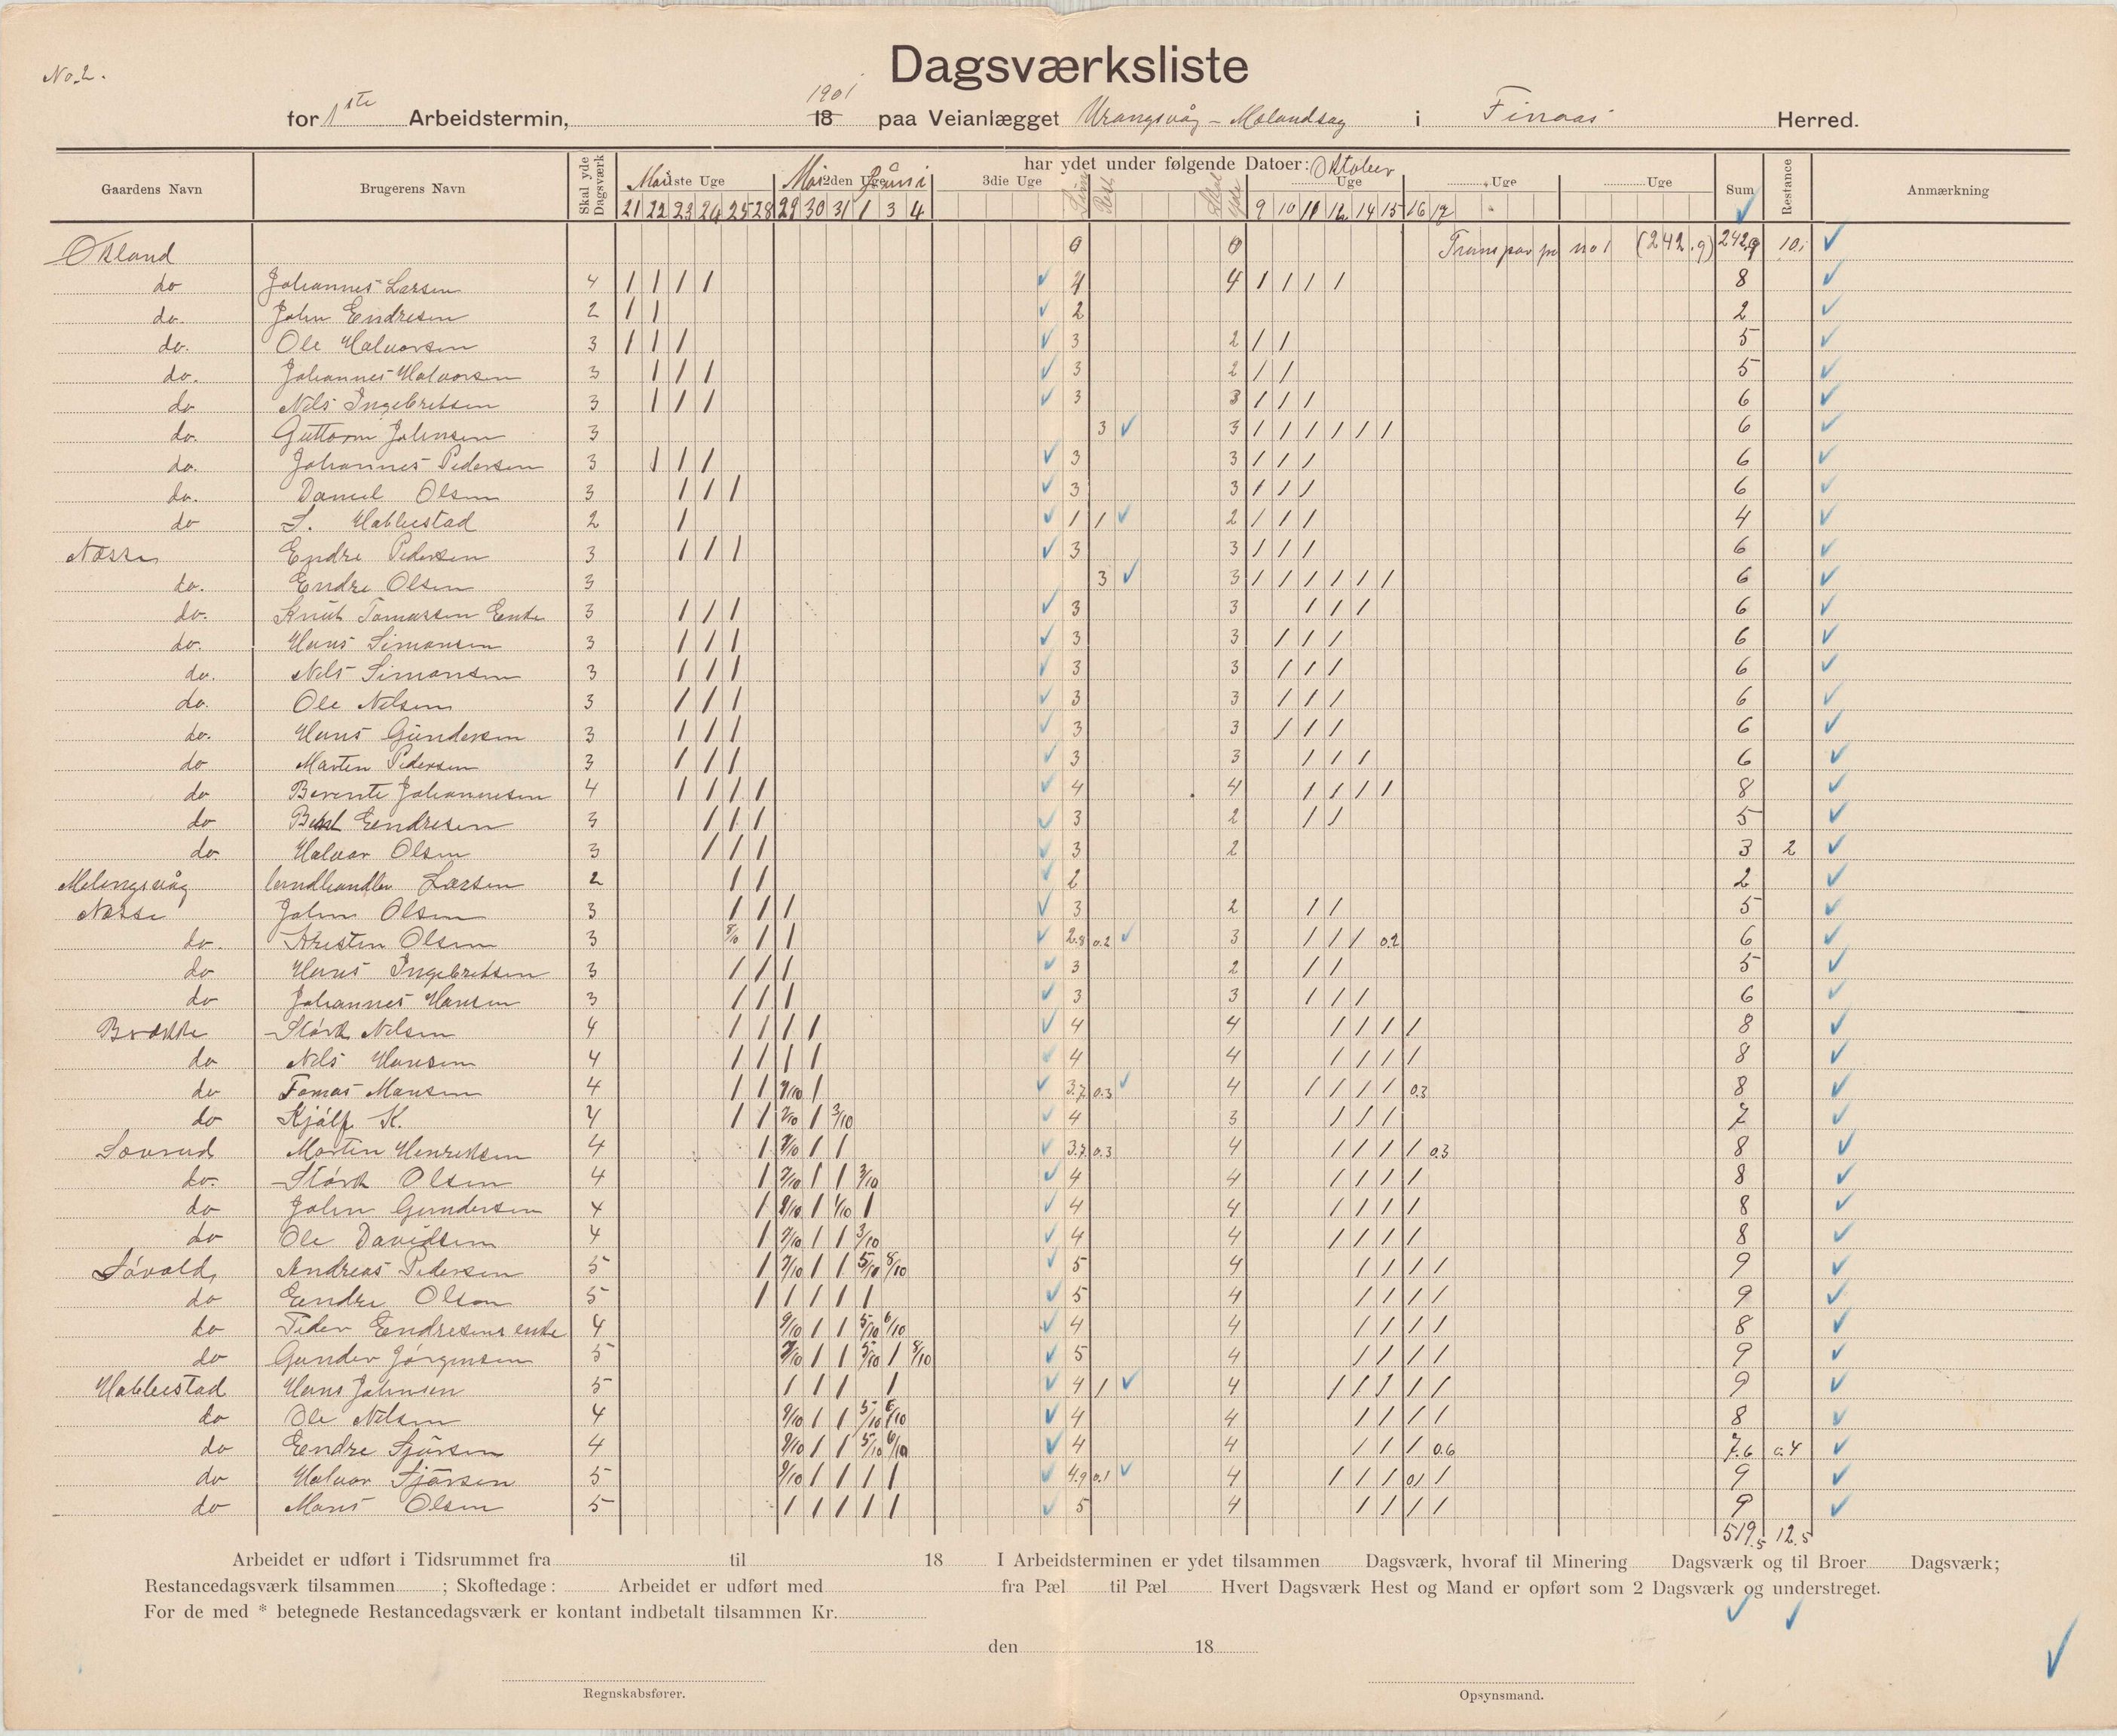 No. 2.
Dagsværksliste
for 1ste Arbeidstermin, 18 1901 paa Veianlægget Urangsvåg - Mælandsåg i Finaas Herred.
Gaardens Navn Brugerens Navn Skal yde Dagsværk har ydet under følgende Datoer: Oktober Sum Restance Anmærkning
Mai 1ste Uge Mai 2den Uge Juni 3die Uge Sum Rest Skal yde Uge Uge Uge
21 22 23 24 25 28 29 30 31 1 3 4 9 10 11 12 14 15 16 17
Økland 0 0 Transpor fra no 1 (242.9) 242.9 10.1
do Johannes Larsen 4 / / / / 4 4 / / / / 8
do. John Endresen 2 / / 2 2
do. Ole Halvorsen 3 / / / 3 2 / / 5
do. Johannes Halvorsen 3 / / / 3 2 / / 5
do Nels Ingebretsen 3 / / / 3 3 / / / 6
do. Guttorm Johnsen 3 3 3 / / / / / / 6
do. Johannes Pedersen 3 / / / 3 3 / / / 6
do. Daniel Olsen 3 / / / 3 3 / / / 6
do S. Hablestad 2 / 1 1 2 / / / 4
Næsse Endre Pedersen 3 / / / 3 3 / / / 6
do. Endre Olsen 3 3 3 / / / / / / 6
do. Knut Tomassen Enke 3 / / / 3 3 / / / 6
do. Hans Simonsen 3 / / / 3 3 / / / 6
do. Nels Simonsen 3 / / / 3 3 / / / 6
do. Ole Nelsen 3 / / / 3 3 / / / 6
do. Hans Gundersen 3 / / / 3 3 / / / 6
do Marten Pedersen 3 / / / 3 3 / / / 6
do Berente Johannesen 4 / / / / 4 4 / / / / 8
do Endresen 3 / / / 3 2 / / 5
do. Halvor Olsen 3 / / / 3 2 3 2
Melingsvåg landhandler Larsen 2 / / 2 2
Næsse John Olsen 3 / / / 3 2 / / 5
do. Kristen Olsen 3 8/10 / / 2.8 0.2 3 / / / 0.2 6
do Hans Ingebretsen 3 / / / 3 2 / / 5
do Johannes Hansen 3 / / / 3 3 / / / 6
Brække Størk Nelsen 4 / / / / 4 4 / / / / 8
do Nels Hansen 4 / / / / 4 4 / / / / 8
do Tomas Mansen 4 / / 7/10 / 3.7 0.3 4 / / / / 0.3 8
do Kjålf K. 4 / / 7/10 / 3/10 4 3 / / / 7
Sovrud Morten Henriksen 4 / 7/10 / / 3.7 0.3 4 / / / / 0.3 8
do. Størk Olsen 4 / 7/10 / / 3/10 4 4 / / / / 8
do John Gundersen 4 / 9/10 / 1/10 / 4 4 / / / / 8
do Ole Davidsen 4 / 7/10 / / 3/10 4 4 / / / / 8
Såvold Andreas Pedersen 5 / 7/10 / / 5/10 8/10 5 4 / / / / 9
do Endre Olson 5 / / / / / 5 4 / / / / 9
do Peder Endresens enke 4 9/10 / / 5/10 6/10 4 4 / / / / 8
do Gunder Jørgensen 5 7/10 / / 5/10 / 8/10 5 4 / / / / 9
Hablestad Hans Johnsen 5 / / / / 4 1 4 / / / / / 9
do Ole Nelsen 4 9/10 / / 5/10 6/10 4 4 / / / / 8
do Endre Sjursen 4 9/10 / / 5/10 6/10 4 4 / / / 0.6 7.6 0.4
do Halvor Sjursen 5 9/10 / / / / 4.9 0.1 4 / / / 0.1 / 9
do Mons Olsen 5 / / / / / 5 4 / / / / 9
519.5 12.5
Arbeidet er udført i Tidsrummet fra til 18 I Arbeidsterminen er ydet tilsammen Dagsværk, hvoraf til Minering Dagsværk og til Broer Dagsværk;
Restancedagsværk tilsammen ; Skoftedage: Arbeidet er udført med fra Pæl til Pæl Hvert Dagsværk Hest og Mand er opført som 2 Dagsværk og understreget.
For de med * betegnede Restancedagsværk er kontant indbetalt tilsammen Kr.
den 18
Regnskabsfører. Opsynsmand.